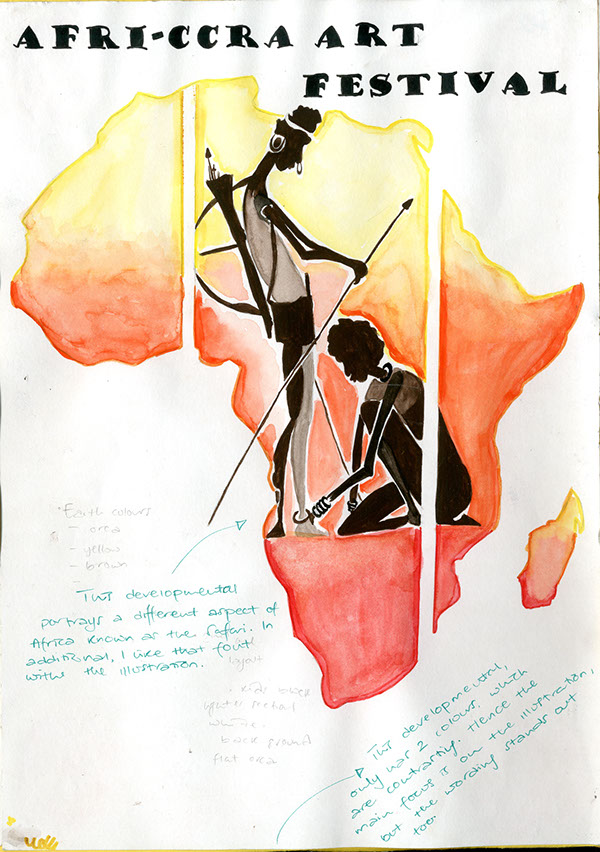 AFRI-CCRA ART
FESTIVAL
Earth colours
- yellow
- brown
This developmental
portrays a different aspect of
Africa known as the Safari. In
additional, I like that font
withs the illustration.
layout
back ground
flat area
This developmental,
only has 2 colours, which
are contrasting. Hence the
main focus is on the illustration,
but the wording stands out
too.